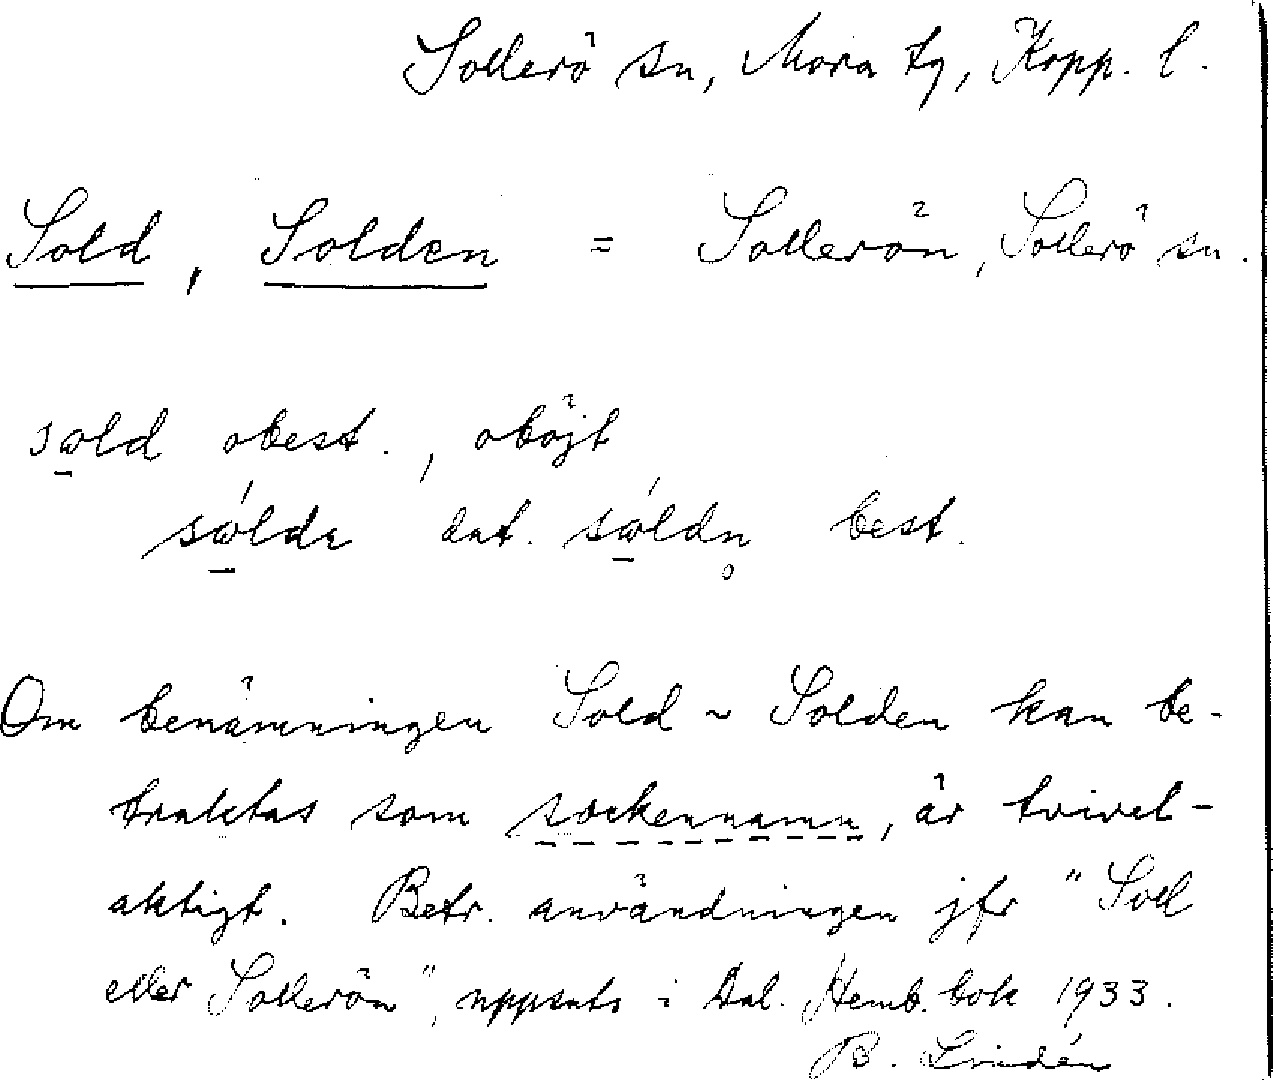 Sollerö sn, Mora tg, Kopp. l.
Sold, Solden = Sollerön, Sollerö sn.
sold obest., oböjt
sólde dat. sóldn̥ best.
Om benämningen Sold ~ Solden kan be-
traktas som sockennamn, är tvivel-
aktigt. Betr. användningen jfr "Soll
eller Sollerön", uppsats i Dal. Hemb. bok 1933.
B. Lindén